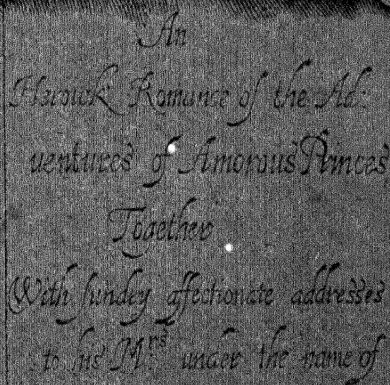 An
Heroick Romance of the Ad:
ventures of Amorous Princes
Together
With sundey affectionate addresses
to his M.rs under the name of